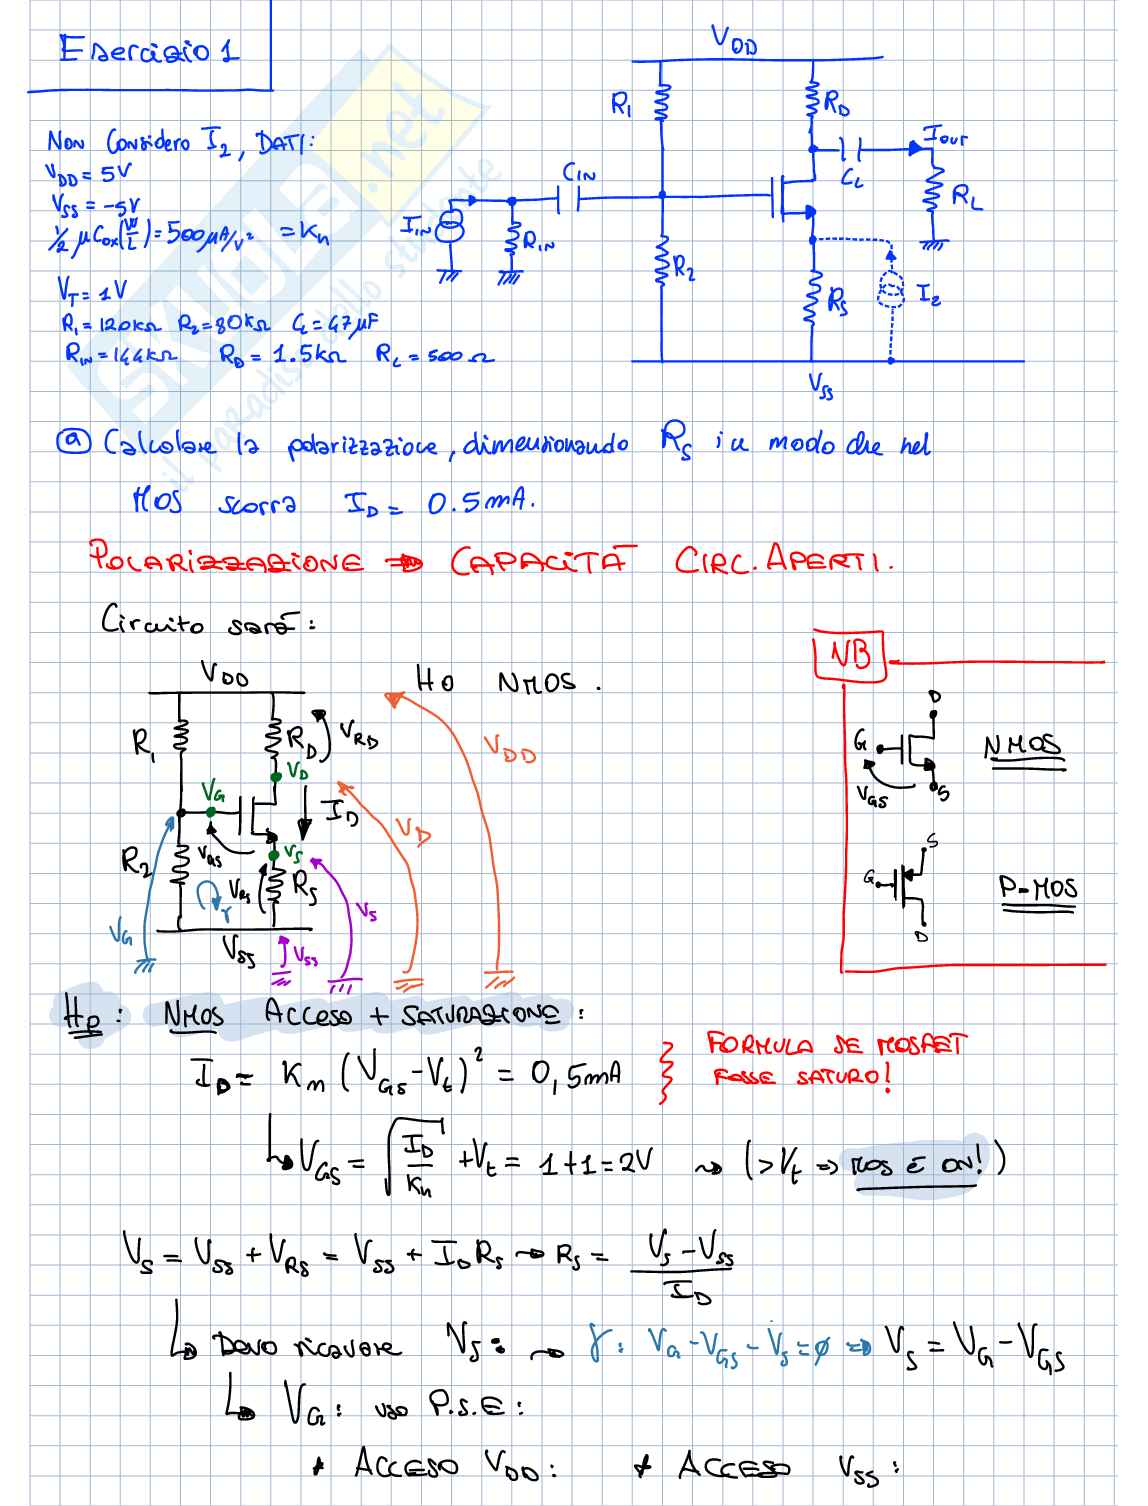 Esercizio 1
Non Considero I2, DATI:
VDD = 5V
VSS = -5V
1/2 μCox(W/L) = 500μA/V² = Kn
VT = 1V
R1 = 120kΩ R2 = 80kΩ CL = 47μF
RIN = 144kΩ RD = 1.5kΩ RL = 500Ω
VDD
R1
RD
IOUT
CIN
CL
RL
IIN
RIN
R2
RS
I2
VSS
SKUOLE.net
il paradiso dello studente
ⓐ Calcolare la polarizzazione, dimensionando RS in modo che nel
MOS scorra ID = 0.5mA.
POLARIZZAZIONE ⇒ CAPACITÀ CIRC. APERTI.
Circuito sarà:
VDD
HO NMOS.
R1
RD
VRD
VD
VDD
VG
ID
VD
R2
VGS
VS
VRS
RS
VS
γ
VG
VSS
VSS
NB
D
G
NMOS
VGS
S
S
G
P-MOS
D
Hp: NMOS ACCESO + SATURAZIONE:
ID = Kn (VGS - Vt)² = 0,5mA
FORMULA SE MOSFET
FOSSE SATURO!
↳ VGS = √(ID/Kn) + Vt = 1+1 = 2V ⇝ (>Vt ⇒ MOS È ON!)
VS = VSS + VRS = VSS + ID RS → RS = (VS - VSS)/ID
↳ Devo ricavare VS: → γ: VG - VGS - VS = ∅ ⇒ VS = VG - VGS
↳ VG: uso P.S.E:
* ACCESO VDD: * ACCESO VSS: